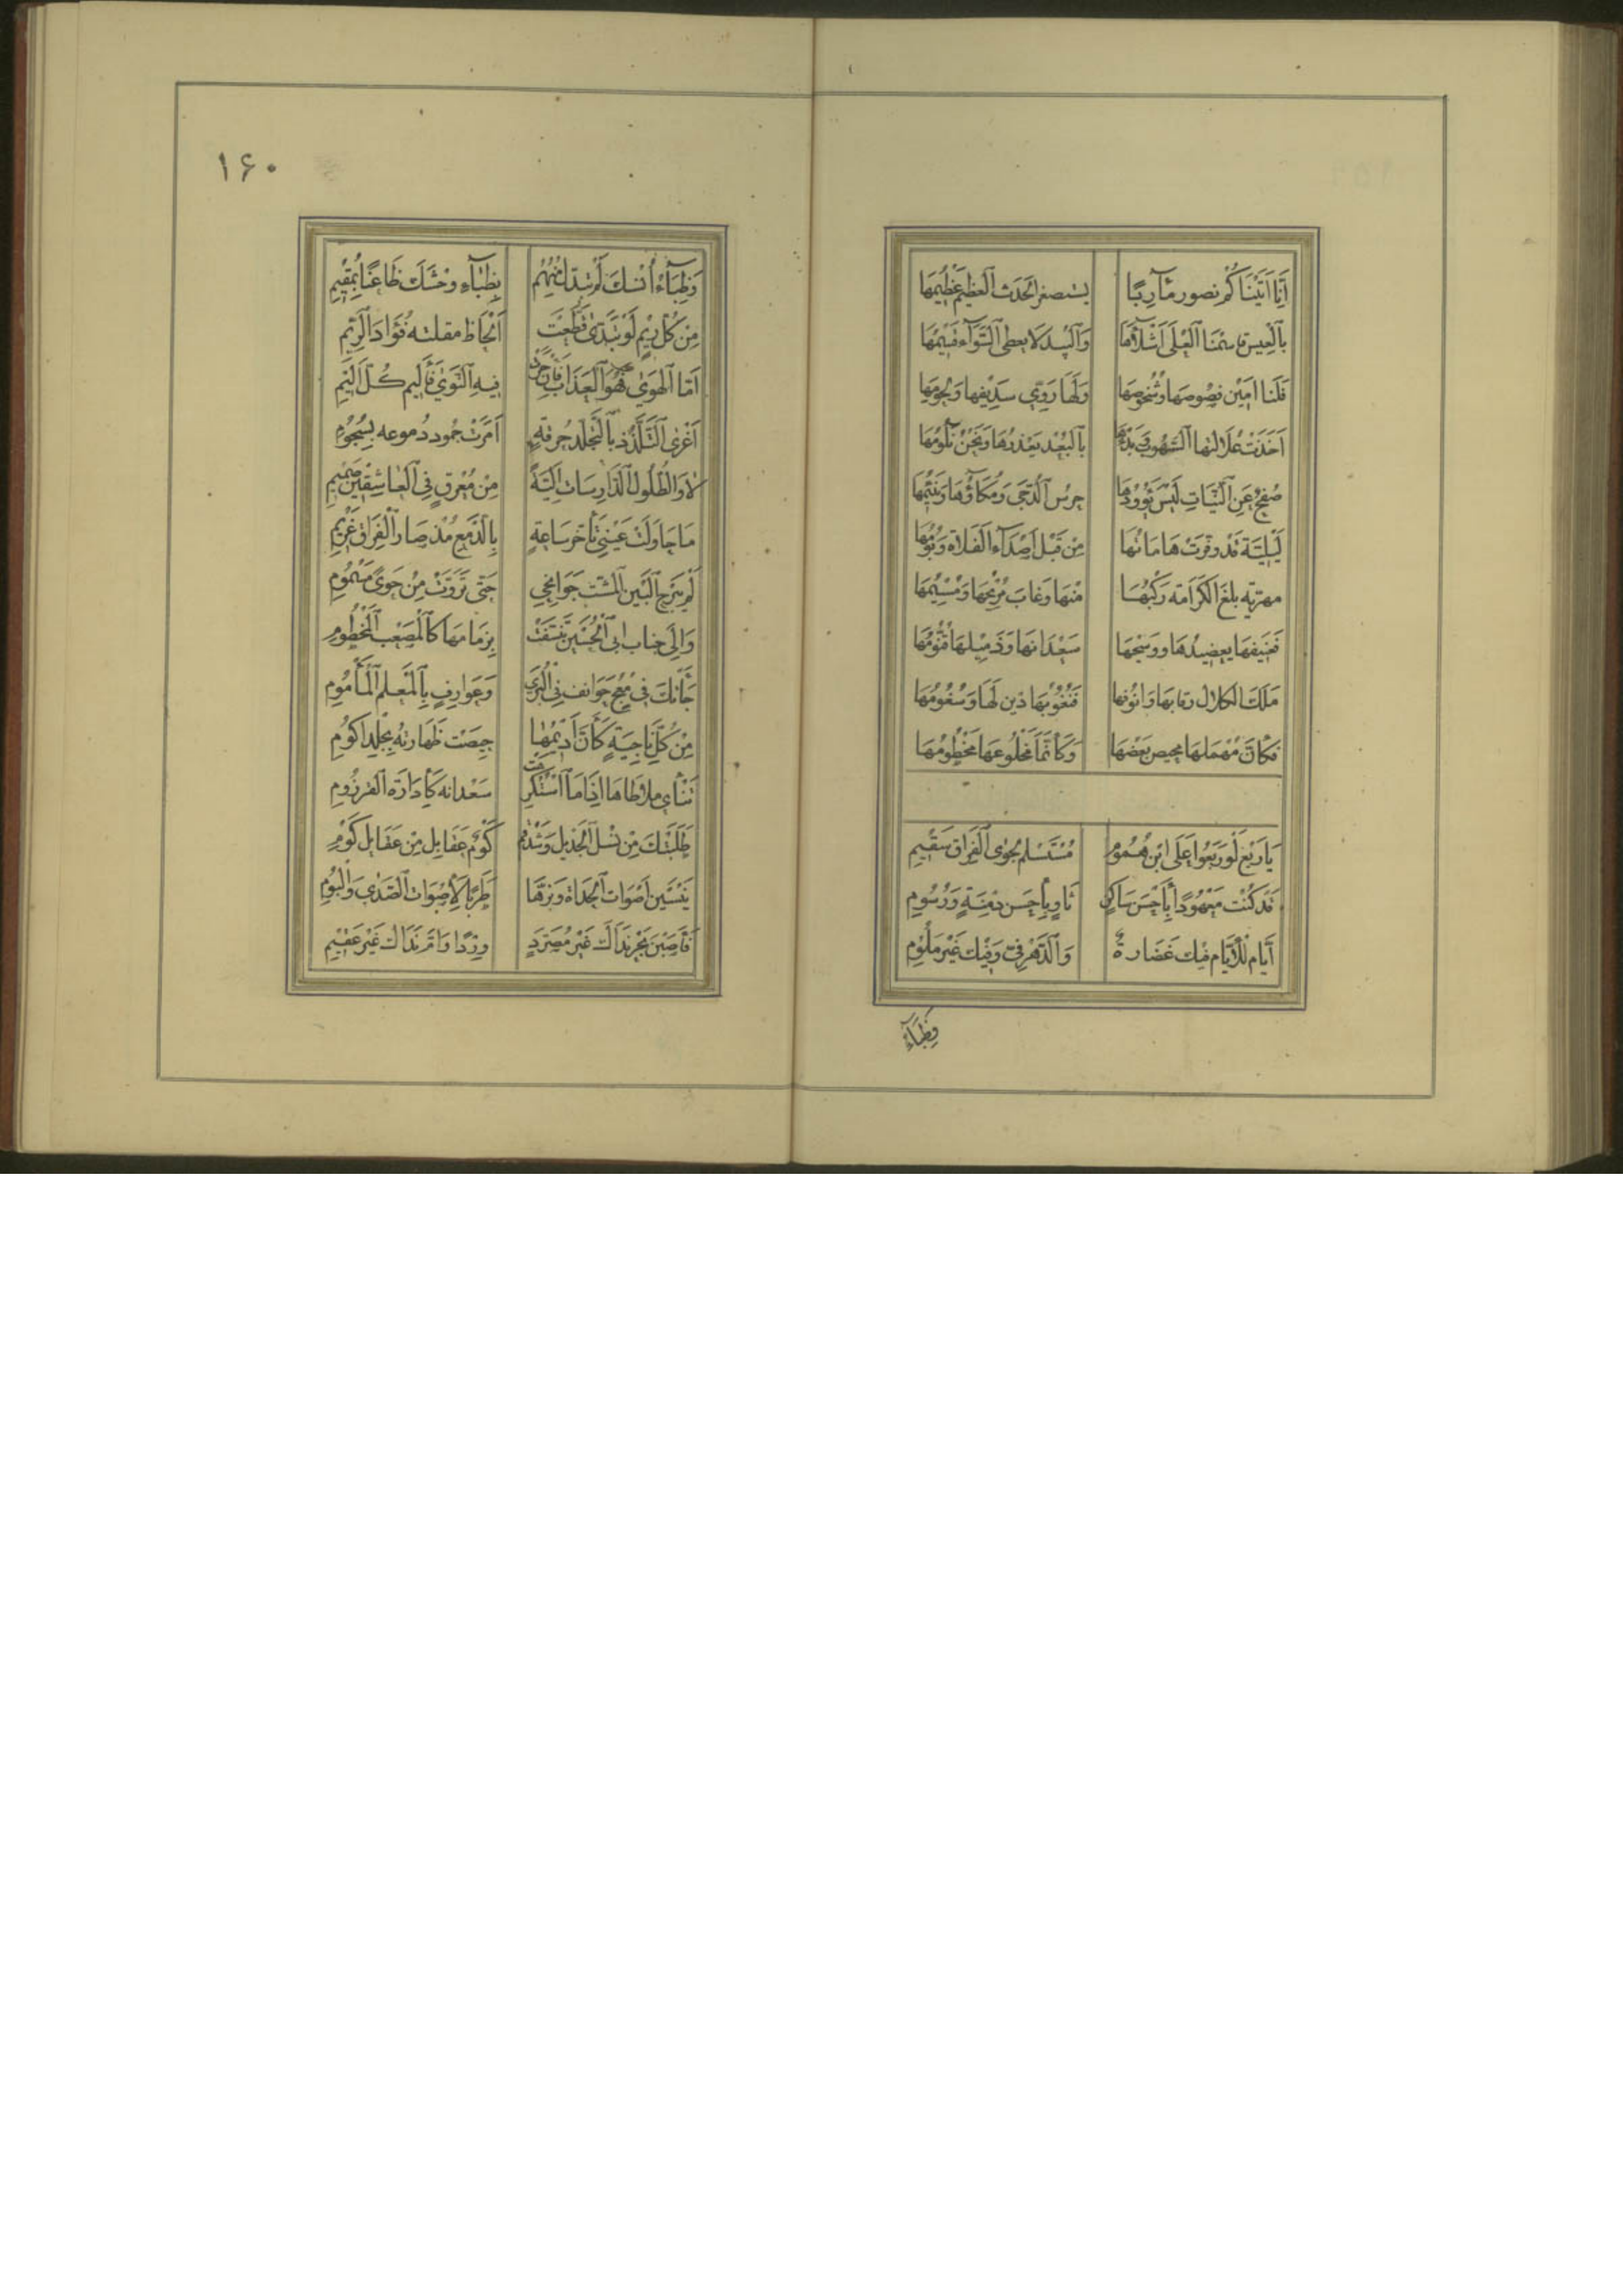 اَنَّا اَتَيْنَاكُم نصور مَآرِبًا يستصغر الحَدَث العَظِيم عَظِيمُهَا
بالعِيس
فَلَنَا امين فصوصها وشخوصها وَلَهَا رَوِيّ سديفها ولحومها
اَخَذَتْ بالبُعْد يَعْذرُهَا وَنَحْنُ نَلُومُهَا
صُفحٌ عَنِ النبات لَيْسَ يؤودها جرس الدُّجَى وَمُكَاؤُهَا وَنَئِيمُهَا
لَيْلِيَّة قَدْ وقرت هَامَاتُهَا مِن قَبْل اَصْدَاء الفَلَاة وَبُومُهَا
مهريّه بلغَ الكَرَامَة رَكْبُهَا منهَا وَغَابَ مُرِيحُهَا وَمُسِيمُهَا
فعنيفها يعضيدها ووسيجها سَعْدَانهَا وَذَمِيلهَا تَنُّومُهَا
مَلَكَ الكلال رقابها وانُوفها
فكَأَنَّ مُهْمَلهَا مخيص بَعْضهَا وَكَأَنَّمَا مَخْلُوعهَا مَخْطُومُهَا
يَا رَبْع لَوْ رَبَعُوا عَلَى ابْن هُمُومِ مُسْتَسْلِم لجَوَى الفِرَاق سَقِيمِ
قَدْ كُنْتَ مَعْهُودًا بِأَحْسَن سَاكِنٍ ثَاوٍ بِأَحْسَن دِمْنَةٍ وَرُسُومِ
اَيَّام لِلْأَيَّام فيك غَضَارة وَالدَّهْر فِيَّ وَفِيكَ غَيْر مَلُومِ
وَظِبَآءُ
١۶٠
وَظِبَآءُ اُنْسِكَ لَمْ تُبَدَّل مِنْهُمُ بِظِبَآءِ وحْشِكَ ظَاعِنًا بِمُقِيمِ
مِنْ كُلّ رِيمٍ لَوْ تَبَدَّى قَطَّعَتْ اَلْحَاظ مقلته فُؤَادَ الرِّيمِ
اَمَّا الهَوَى فَهُوَ العَذَاب فَإِنْ جَرَتْ فِيهِ النَّوَى فَأَلِيم كُلّ اَلِيمِ
اَمَرَتْ جُمُود دُموعه بِسُجُومِ
لَا وَالطُّلُول الدَّارِسَات اَلِيَّةً مِنْ مُعْرِقٍ فِي العَاشِقِين صَمِيمِ
مَا حَاوَلَتْ عَيْنِي تَأَخُّر سَاعَةٍ بِالدَّمْع مُذْ صَارَ الفِرَاق غَرِيمِ
لَمْ يَبْرَح البَيْن المُشِتّ جَوَانِحِي حَتَّى تَرَوَّتْ مِنْ جَوًى مَسْمُومِ
وَإِلَى جناب ابى الحُسَيْن تَشَنَّعَتْ بِزِمَامِهَا كَالمُصْعَب المَخْطُومِ
جَاءَتْكَ فِي مُعُجٍ خَوَانِف فِي البُرَى وَعَوَارِفٍ بِالمَعْلَم المَأْمُومِ
مِنْ كُلّ نَاجِيَةٍ كَأَنَّ اَدِيمَهَا حِيصَتْ ظِهَارته بِجِلْد اكُومِ
تَنْأَى ملاطَاهَا اِذَا مَا اسْتُكْرِهَتْ سَعْدانه كَاِدَارَة القرزُومِ
طَلَبَتْكَ مِن نَسْل الجَدِيل وَشَدْقَم كُوْم عَقَايل مِن عَقَايل كُوْمِ
يَنْسَيْن اَصْوَات الحُدَاة وَنَبْرَهَا طَرَبًا لِأَصْوَات الصَّدَى وَالبُومِ
فَأَصَبْنَ بَحْر نَدَاكَ غَيْر مُصَرَّدٍ وِرْدًا وَاُمّ نَدَاكَ غَيْر عَقِيمِ